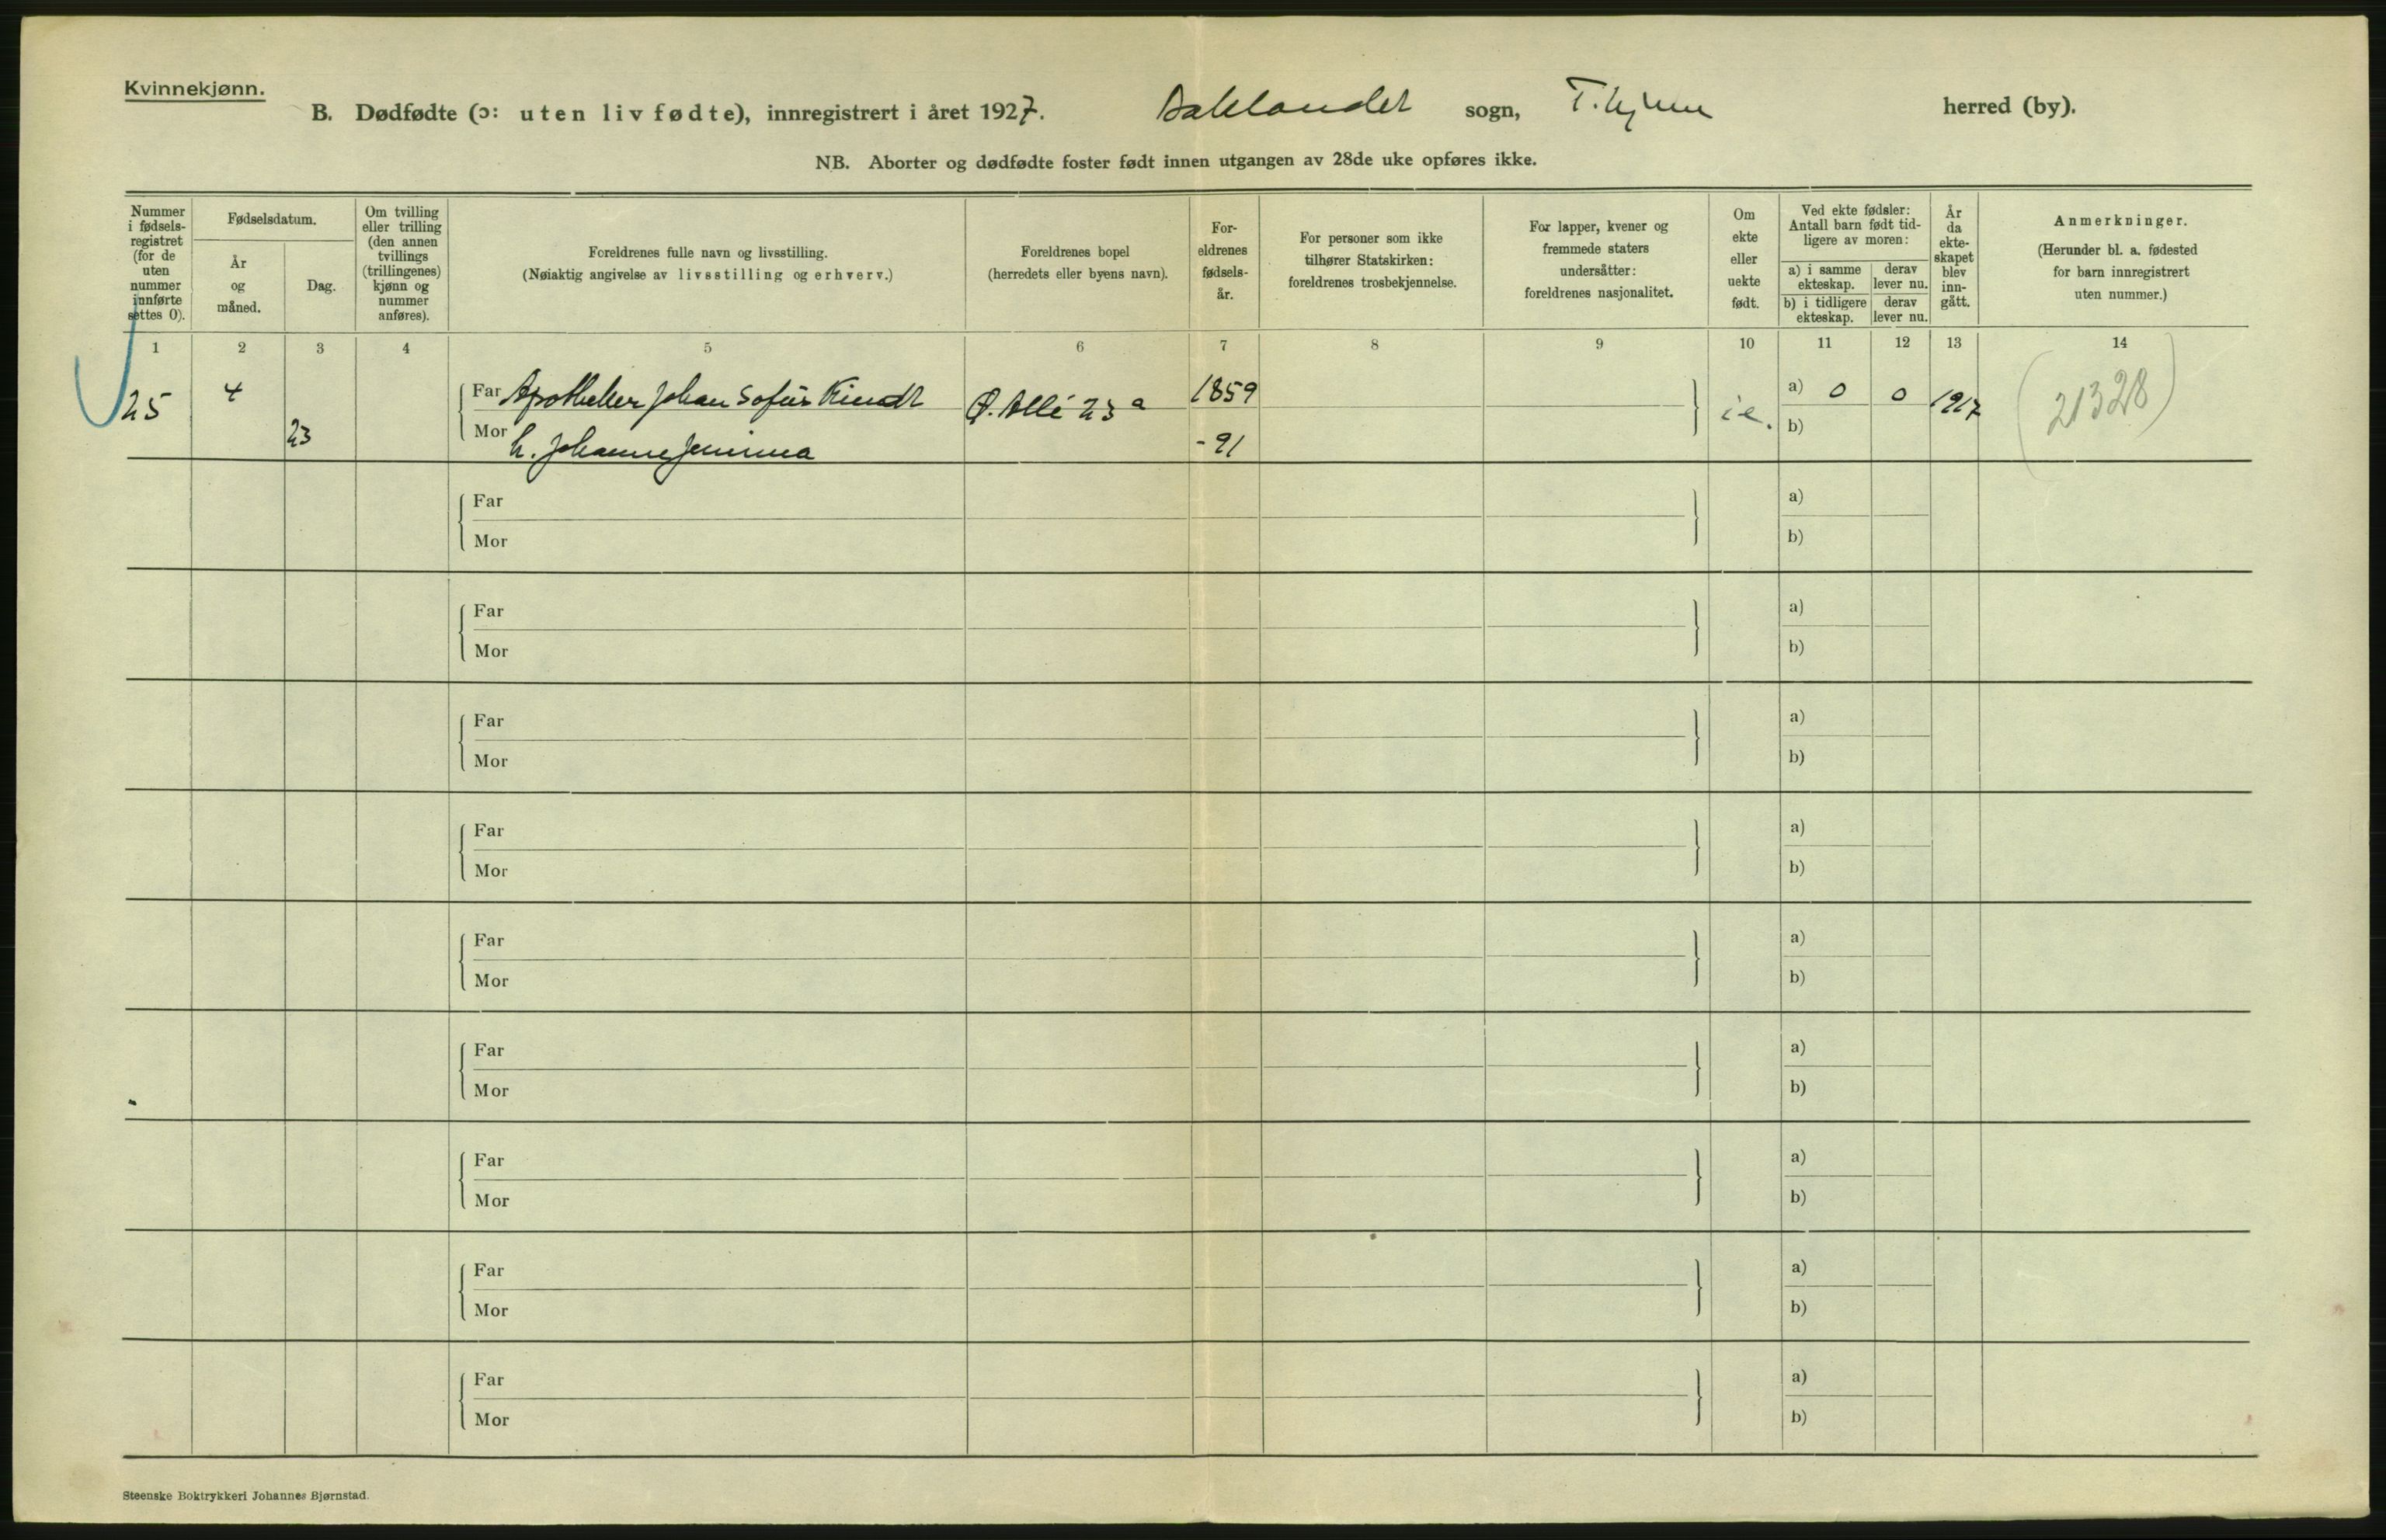 Kvinnekjønn.
B. Dødfødte (ɔ: uten liv fødte), innregistrert i året 1927. Baklandet sogn, T.hjem herred (by).
NB. Aborter og dødfødte foster født innen utgangen av 28de uke opføres ikke.
Nummer i fødselsregistret (for de uten nummer innførte settes 0).
Fødselsdatum.
År og måned.
Dag.
Om tvilling eller trilling (den annen tvillings (trillingenes) kjønn og nummer anføres).
Foreldrenes fulle navn og livsstilling.
(Nøiaktig angivelse av livsstilling og erhverv.)
Foreldrenes bopel
(herredets eller byens navn).
Foreldrenes fødselsår.
For personer som ikke tilhører Statskirken: foreldrenes trosbekjennelse.
For lapper, kvener og fremmede staters undersåtter: foreldrenes nasjonalitet.
Om ekte eller uekte født.
Ved ekte fødsler: Antall barn født tidligere av moren:
a) i samme ekteskap.
derav lever nu.
b) i tidligere ekteskap.
derav lever nu.
År da ekteskapet blev inngått.
Anmerkninger.
(Herunder bl. a. fødested for barn innregistrert uten nummer.)
1 2 3 4 5 6 7 8 9 10 11 12 13 14
25 4 Far Apotheker Johan Sofus Kindt Ø. Allé 23a 1859 ie. a) 0 0 1917 (21328)
23 Mor h. Johanne Jemima -91 b)
Far a)
Mor b)
Far a)
Mor b)
Far a)
Mor b)
Far a)
Mor b)
Far a)
Mor b)
Far a)
Mor b)
Far a)
Mor b)
Far a)
Mor b)
Far a)
Mor b)
Steenske Boktrykkeri Johannes Bjørnstad.